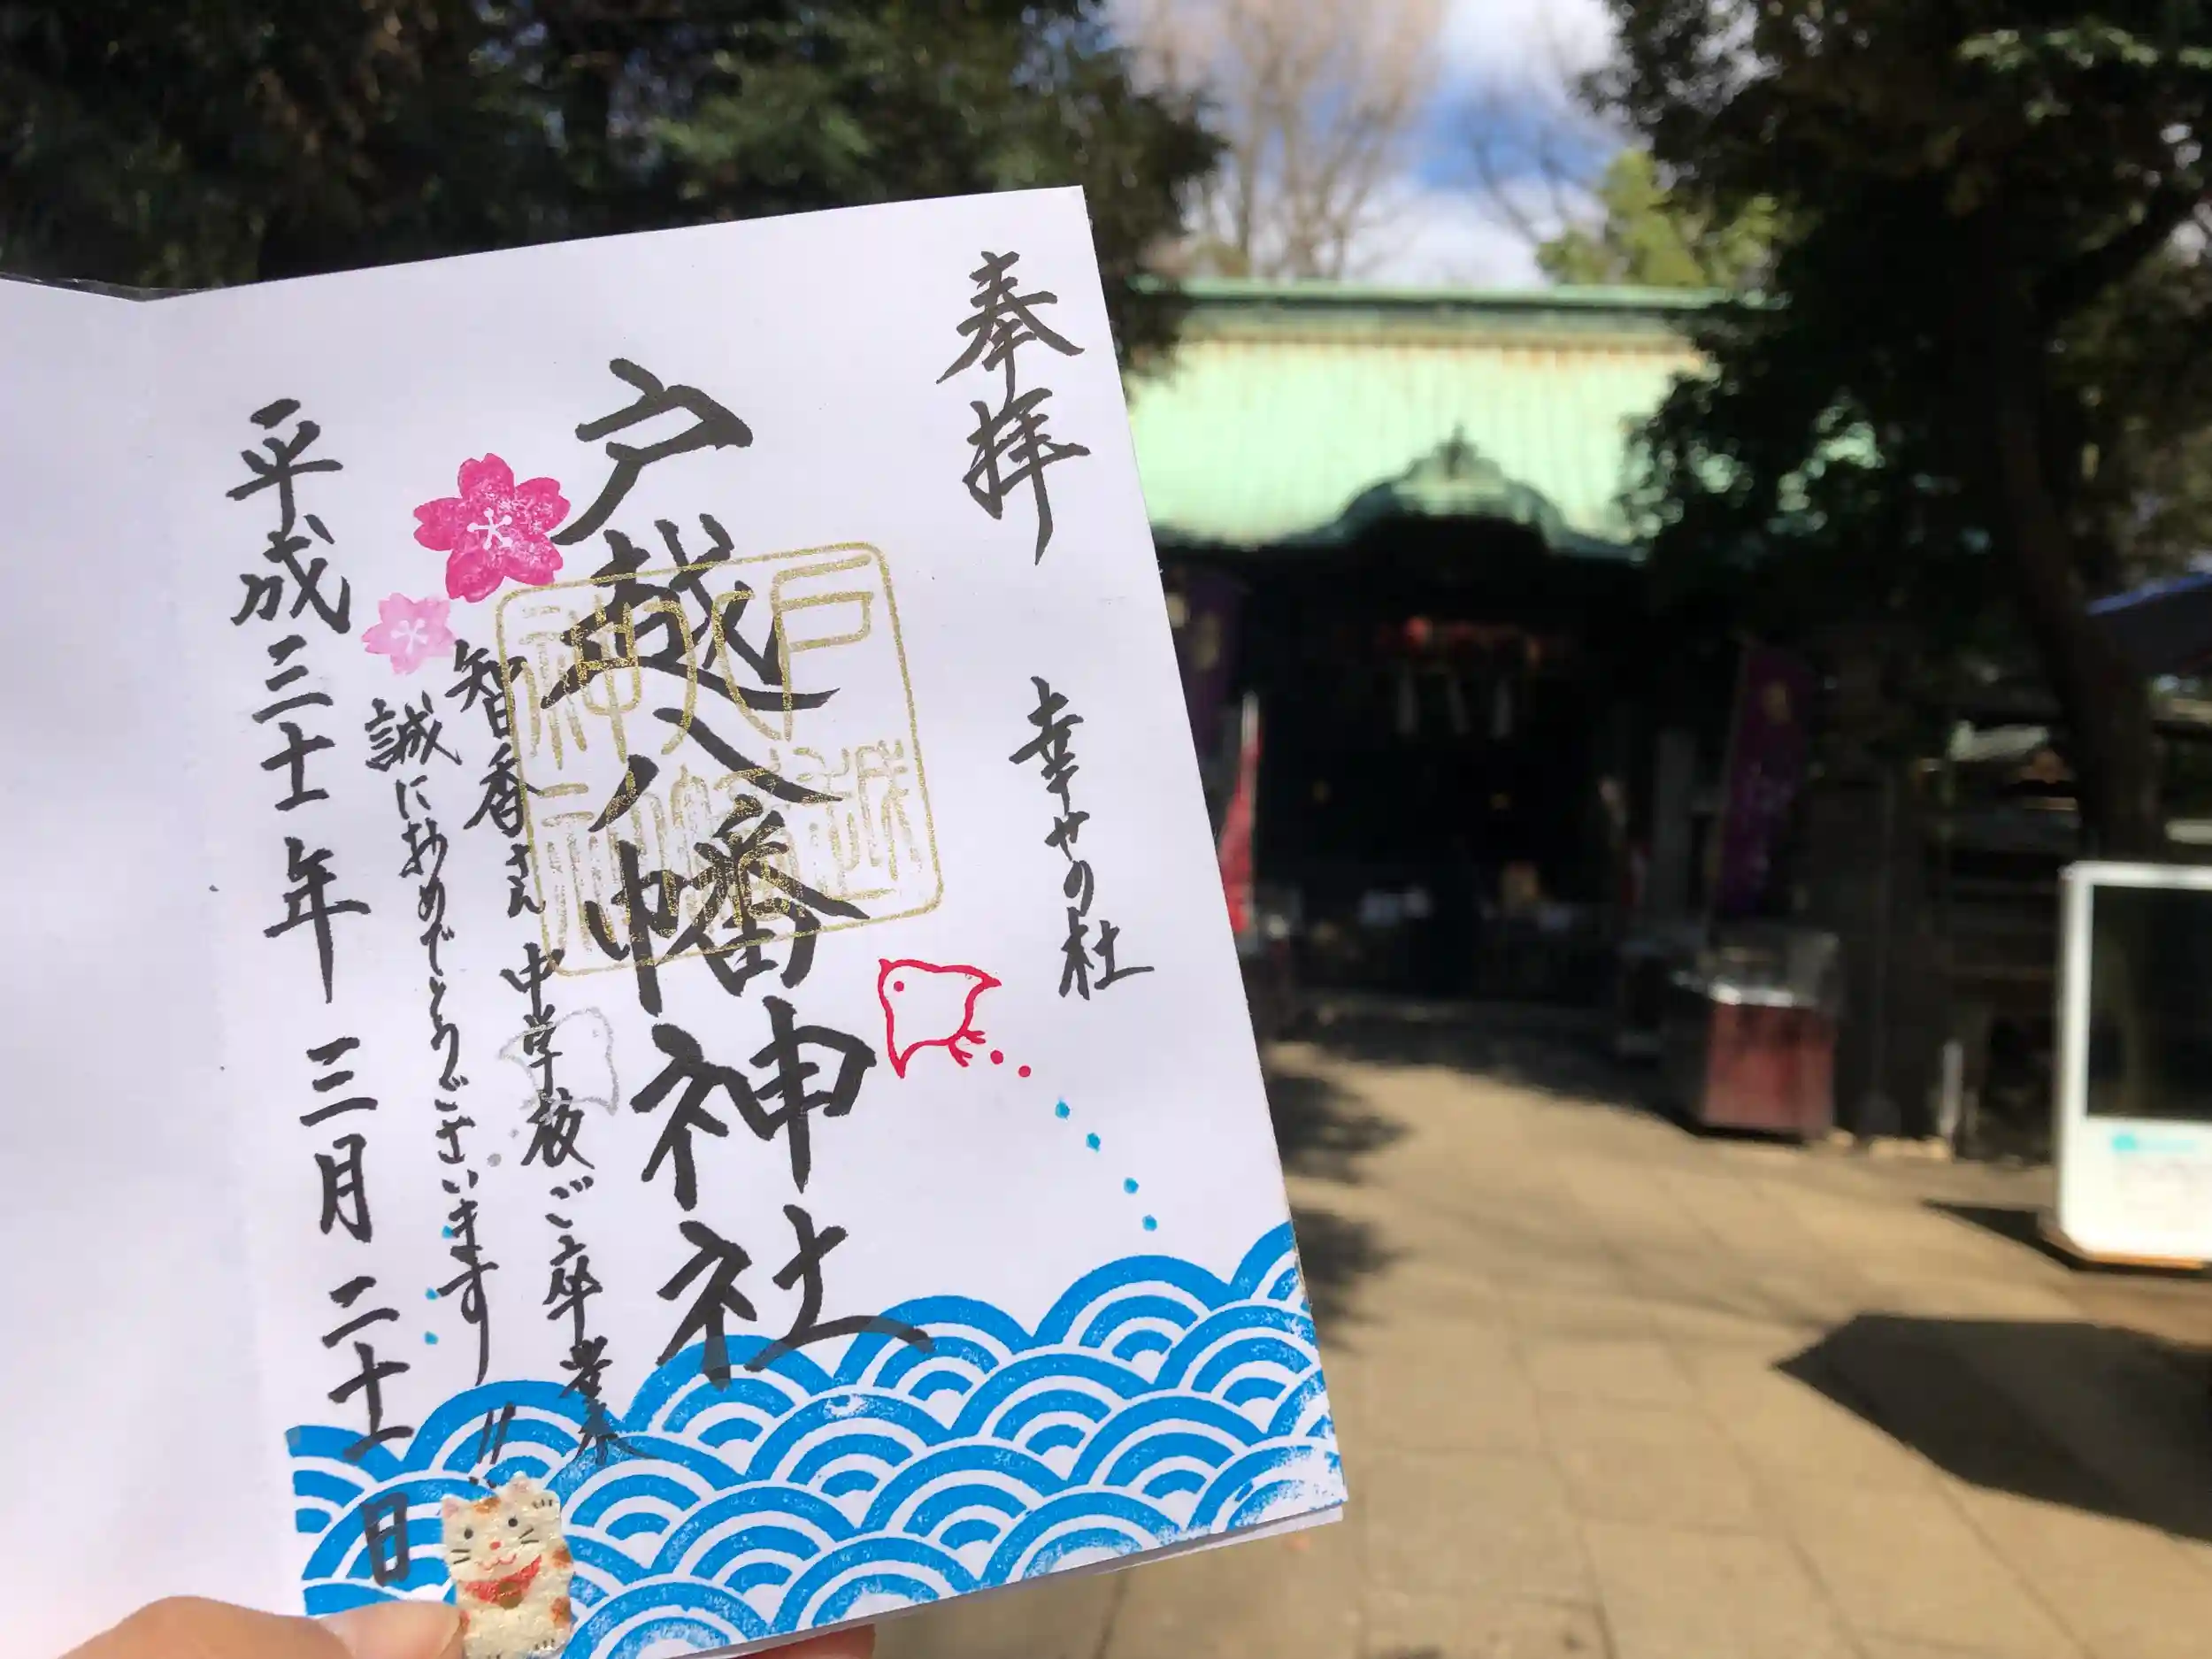 奉拝
幸せの杜
戸越八幡神社
戸越
八幡
神社
智香さん 中学校ご卒業
誠におめでとうございます
平成三十一年 三月 二十一日